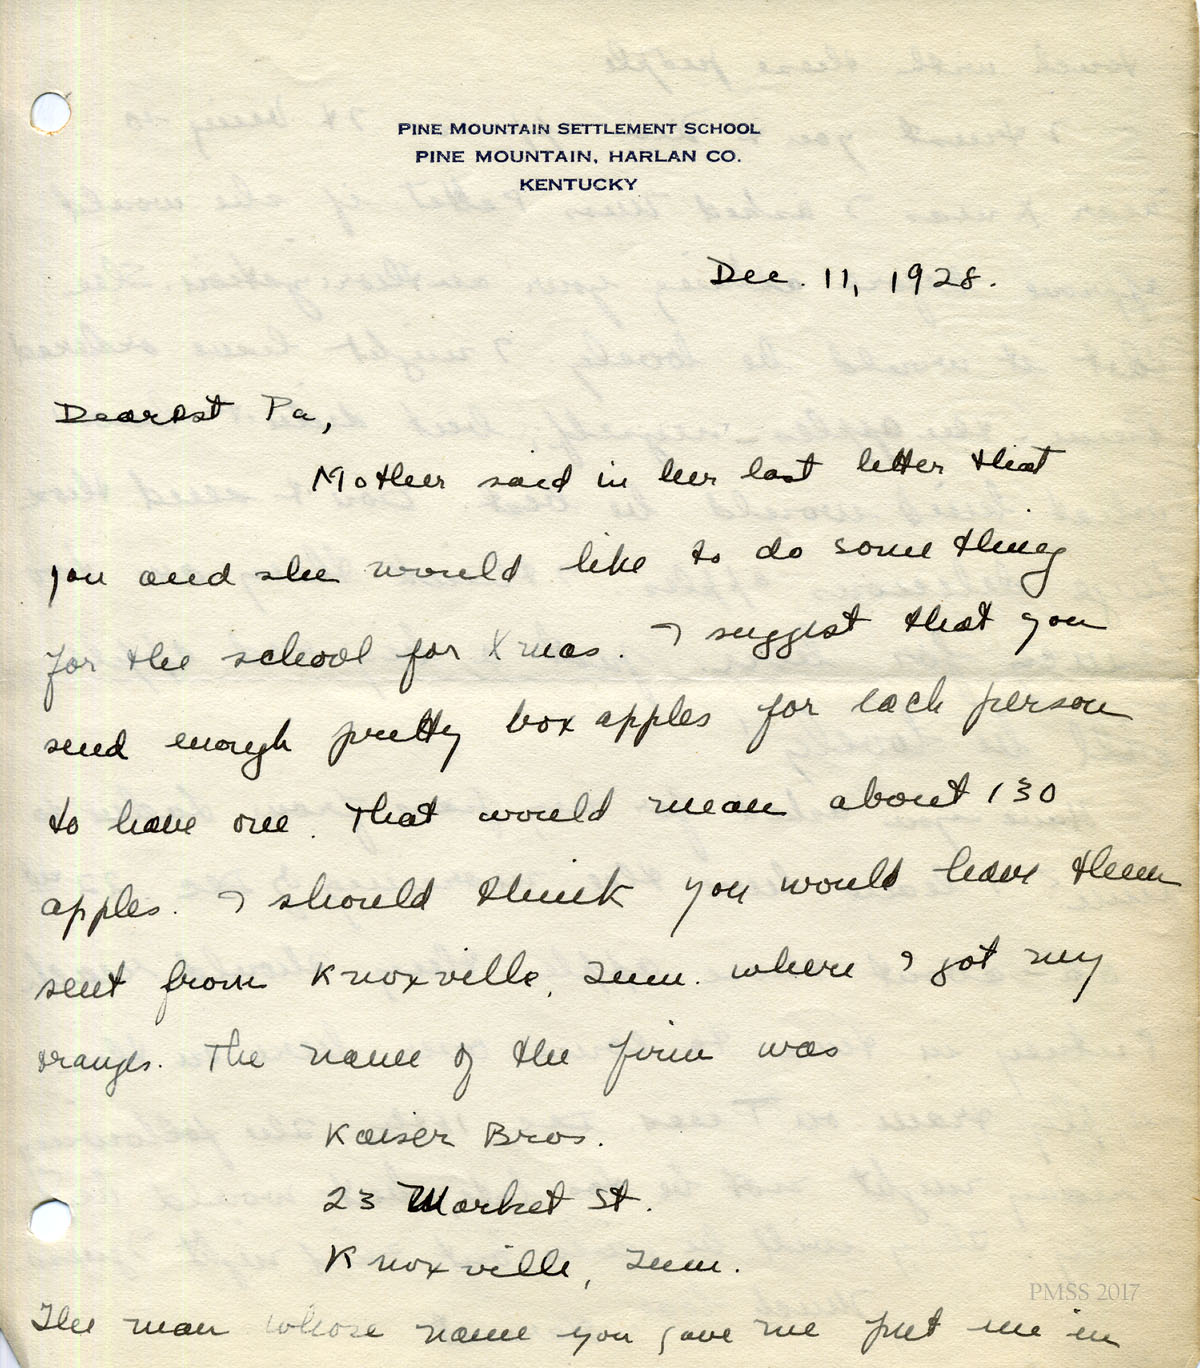 PINE MOUNTAIN SETTLEMENT SCHOOL
PINE MOUNTAIN, HARLAN CO.
KENTUCKY
Dec. 11, 1928.
Dearest Pa,
Mother said in her last letter that
you and she would like to do something
for the school for Xmas. I suggest that you
send enough pretty box apples for each person
to have one. That would mean about 130
apples. I should think you would have them
sent from Knoxville, Tenn. where I got my
oranges. The name of the firm was
Kaiser Bros.
23 Market St.
Knoxville, Tenn.
The man whose name you gave me put me in
PMSS 2017